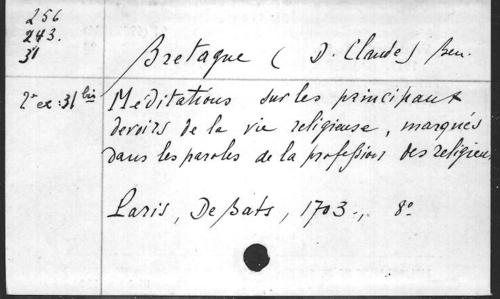 256
243.
31
Bretagne ( D. Claude) Ben.
2e ex: 31 bis
Meditations sur les principaux
devoirs de la vie religieuse, marqués
dans les paroles de la profession des religieux
Paris, De Bats, 1703., 8o